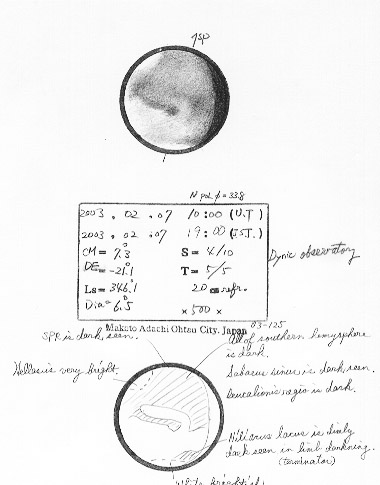 N pol φ = 33.8
2003 . 02 . 07 10:00 (U.T)
2003 . 02 . 07 19:00 (J.S.T)
CM = 7.3° S = 4/10
DE = -21.1° T = 5/5
Ls = 346.1 20 cm refr.
Dia = 6.5 × 500 ×
Dynic observatory
Makoto Adachi Ohtsu City, Japan
03-125
SPR is dark, seen.
All of southern hemysphere
is dark.
Hellas is very bright.
Sabaeus sinus is dark, seen.
Deucalionis regio is dark.
Niliacus lacus is dimly
dark seen in limb darkning.
(terminator)